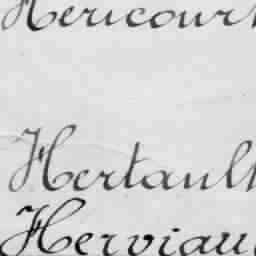 Hericourt
Hertault
Herviau